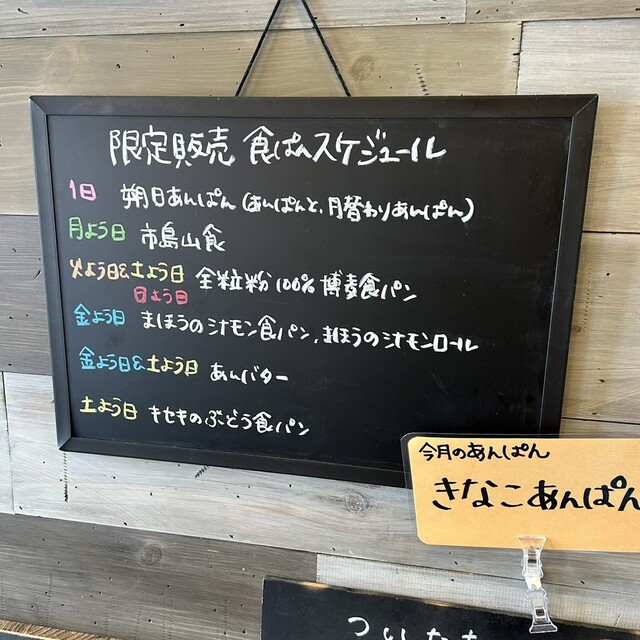 限定販売 食ぱんスケジュール
1日 朔日あんぱん(あんぱんと、月替わりあんぱん)
月よう日 市島山食
火よう日&土よう日 全粒粉100%博麦食パン
日よう日
金よう日 まほうのシナモン食パン、まほうのシナモンロール
金よう日&土よう日 あんバター
土よう日 キセキのぶどう食パン
今月のあんぱん
きなこあんぱん